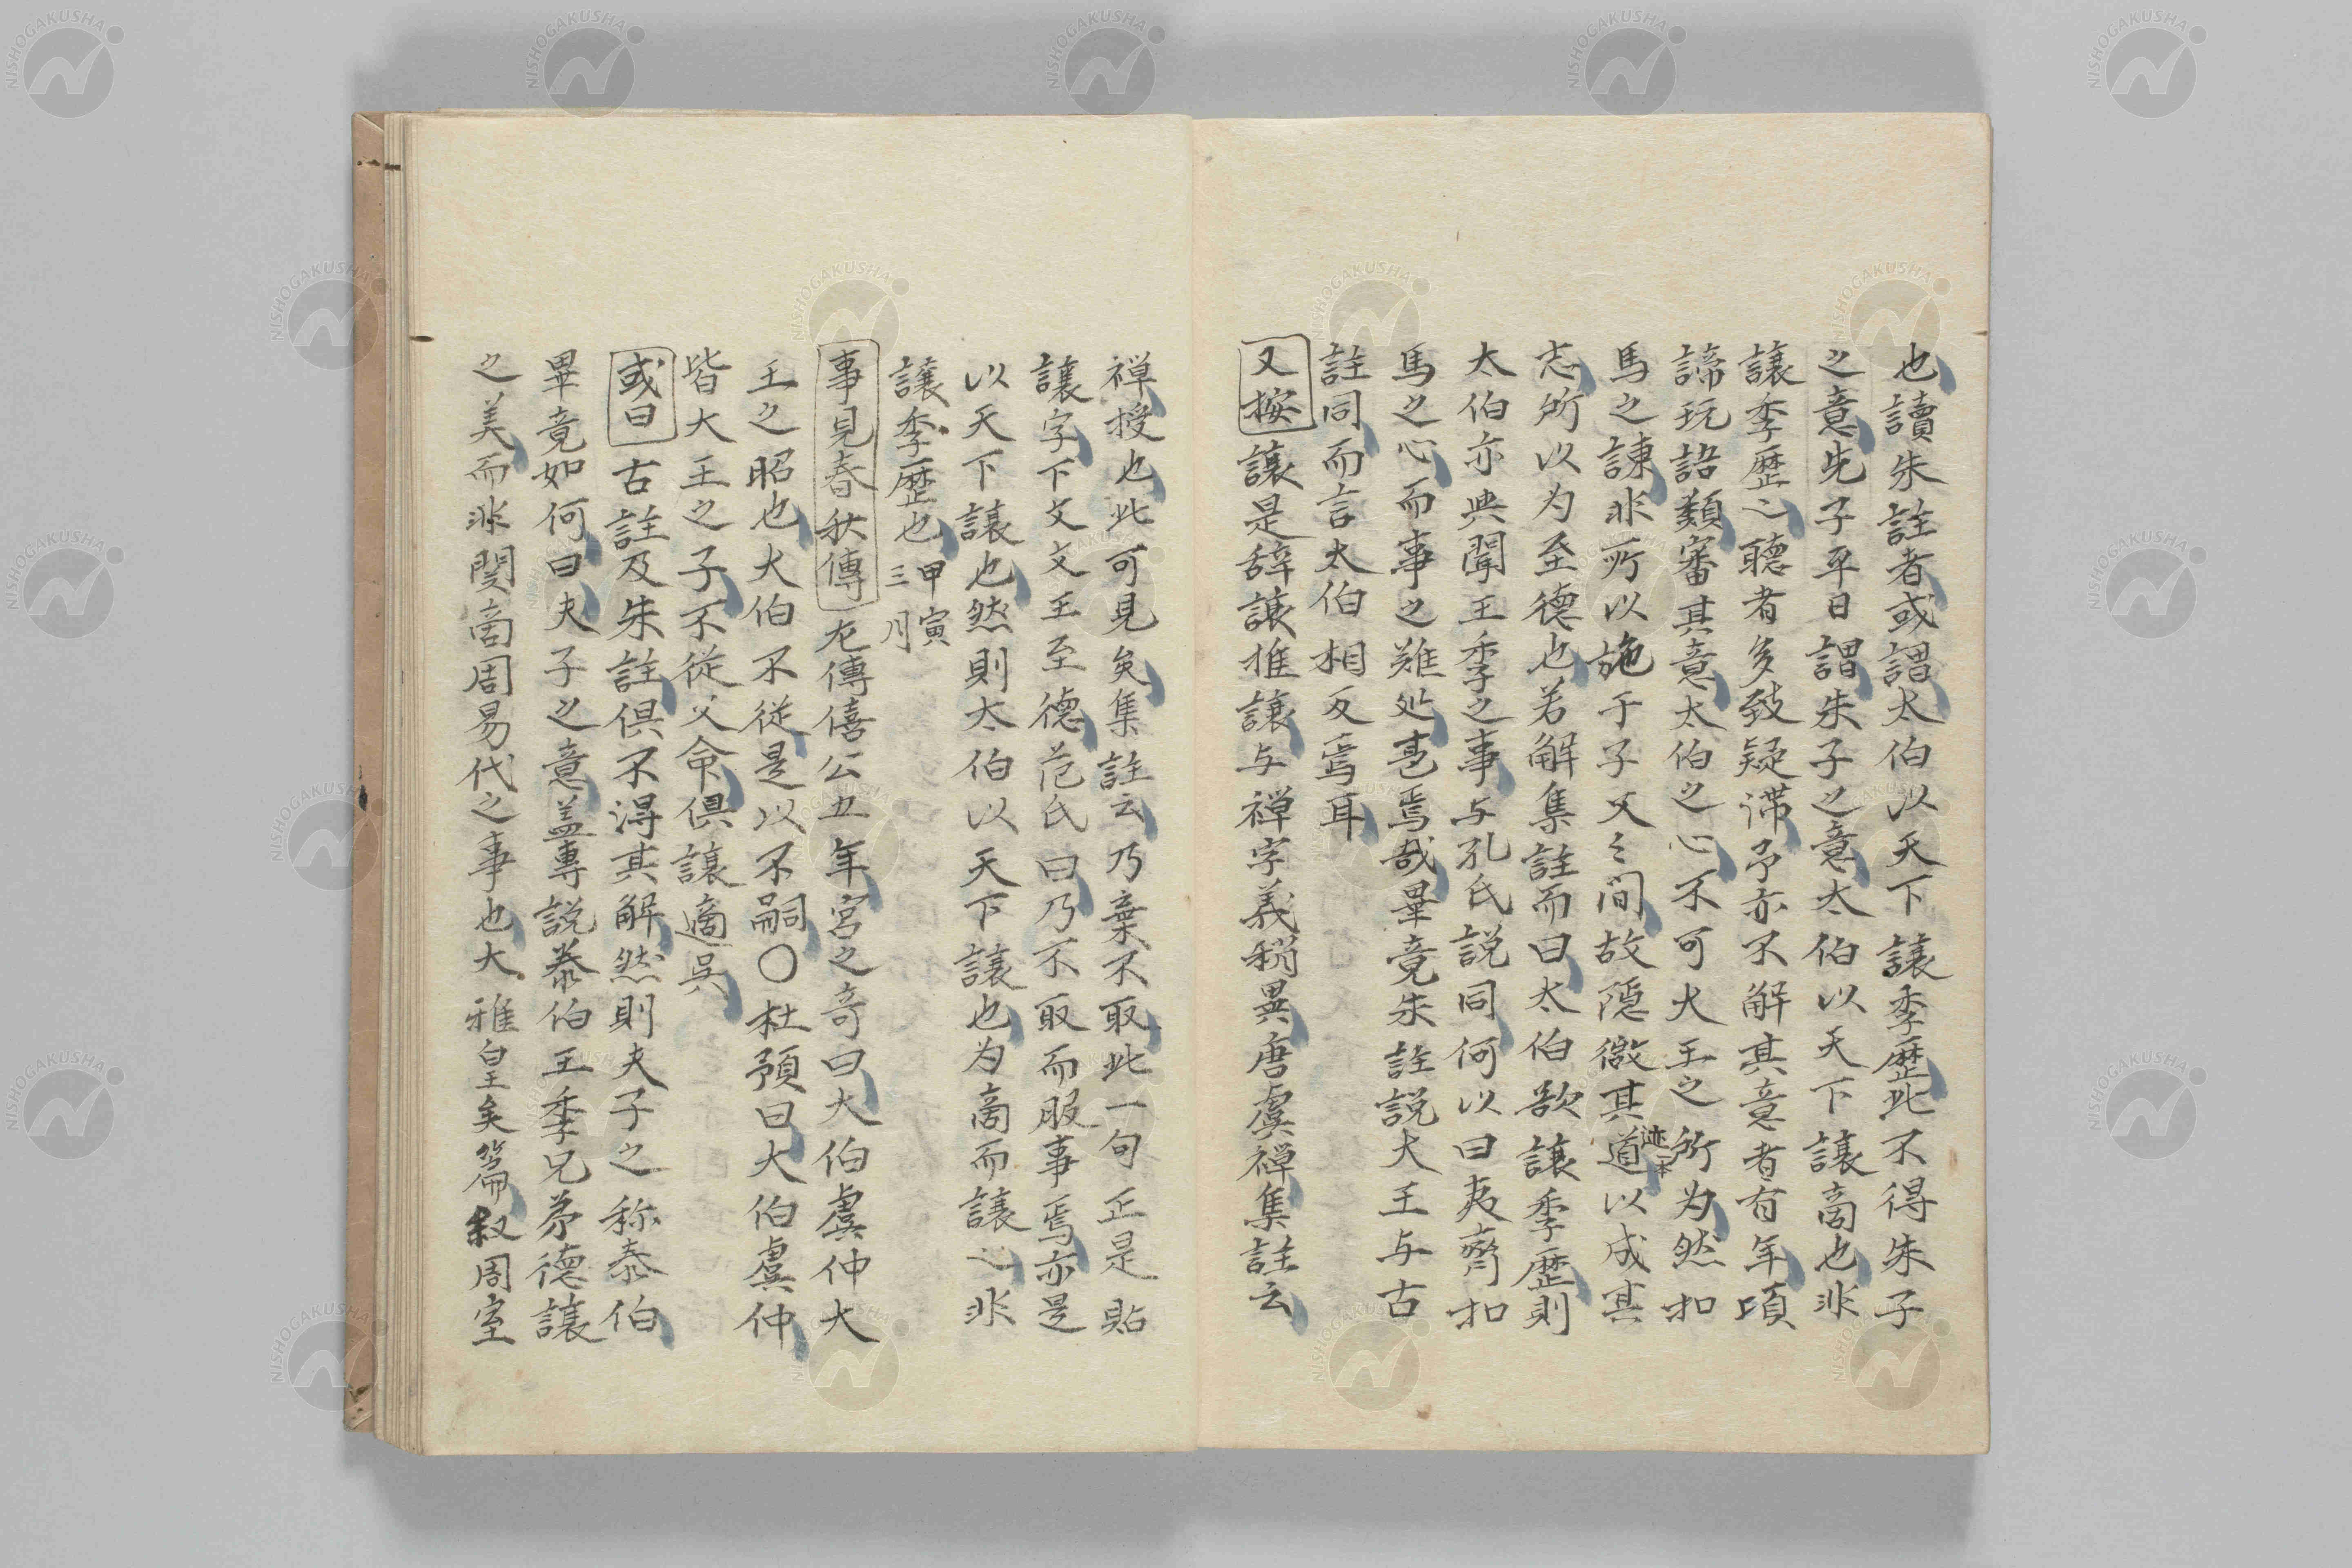 也讀朱註者或謂太伯以天下讓季歷此不得朱子
之意先子平日謂朱子之意太伯以天下讓商也非
讓季歷之聴者多致疑滞予亦不解其意者有年項
諦玩語類審其意太伯之心不可大王之所为然扣
馬之諌非所以施于子父之間故隠微其道以成其
迹一本
志所以为至德也若解集註而曰太伯欲讓季歷則
太伯亦與聞王季之事与孔氏説同何以曰夷齊扣
馬之心而事之難処甚焉哉畢竟朱註説大王与古
註同而言太伯相反焉耳
又按讓是辞讓推讓与禅字義稍異唐虞禅集註云
禅授也此可見矣集註云乃棄不取此一句正是貼
讓字下文文王至德范氏曰乃不取而服事焉亦是
以天下讓也然則太伯以天下讓也为商而讓之非
讓季歷也甲寅三月
事見春秋傳左傳僖公五年宮之奇曰大伯虞仲大
王之昭也大伯不従是以不嗣〇杜預曰大伯虞仲
皆大王之子不従父命俱讓適呉
或曰古註及朱註俱不得其解然則夫子之称泰伯
畢竟如何曰夫子之意蓋專説泰伯王季兄弟德讓
之美而非関商周易代之事也大雅皇矣篇叙周室
NISHOGAKUSHA